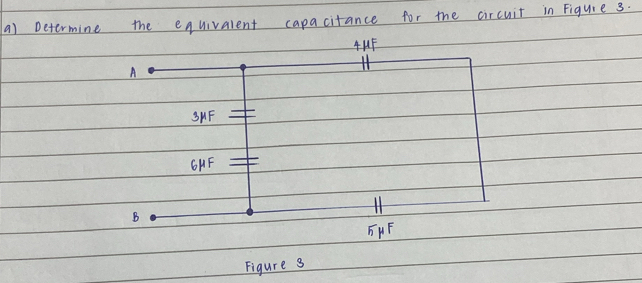 a) Determine the equivalent capacitance for the circuit in Figure 3.
4µF
A
3µF
6µF
B
5µF
Figure 3